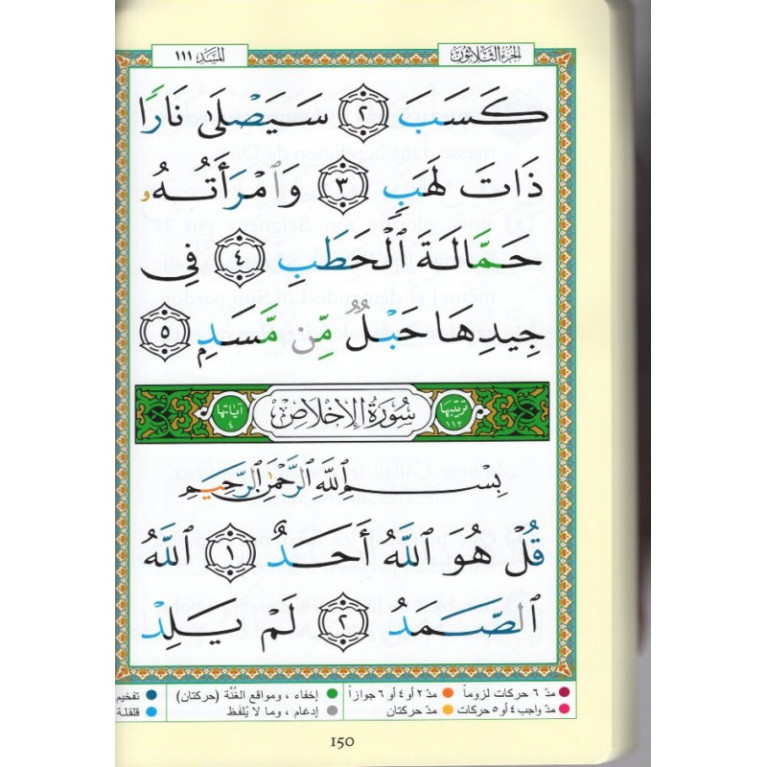 الجزء الثلاثون المسد ١١١
كَسَبَ ٢ سَيَصْلَىٰ نَارًا
ذَاتَ لَهَبٍ ٣ وَٱمْرَأَتُهُۥ
حَمَّالَةَ ٱلْحَطَبِ ٤ فِى
جِيدِهَا حَبْلٌ مِّن مَّسَدٍ ٥
ترتيبها ١١٢ سُورَةُ الإِخْلَاصِ آياتها ٤
بِسْمِ ٱللَّهِ ٱلرَّحْمَٰنِ ٱلرَّحِيمِ
قُلْ هُوَ ٱللَّهُ أَحَدٌ ١ ٱللَّهُ
ٱلصَّمَدُ ٢ لَمْ يَلِدْ
مدّ ٦ حركات لزوماً مدّ ٢ أو ٤ أو ٦ جوازاً إخفاء ، ومواقع الغُنَّة (حركتان) تفخيم
مدّ واجب ٤ أو ٥ حركات مدّ حركتان إدغام ، وما لا يُلفَظ قلقلة
150